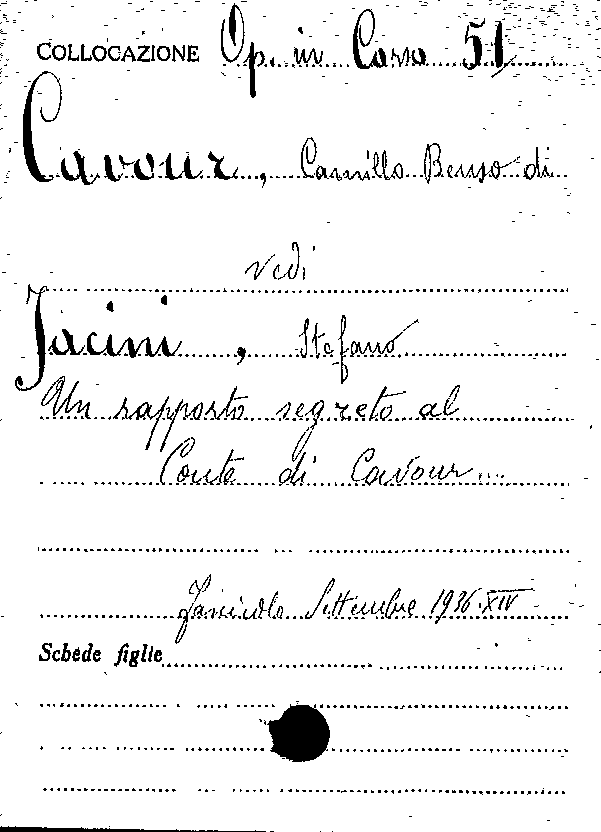 COLLOCAZIONE Op. in Corso 51
Cavour, Camillo Benso di
vedi
Jacini, Stefano
Un rapporto segreto al
Conte di Cavour...
Fascicolo Settembre 1936.XIV
Schede figlie